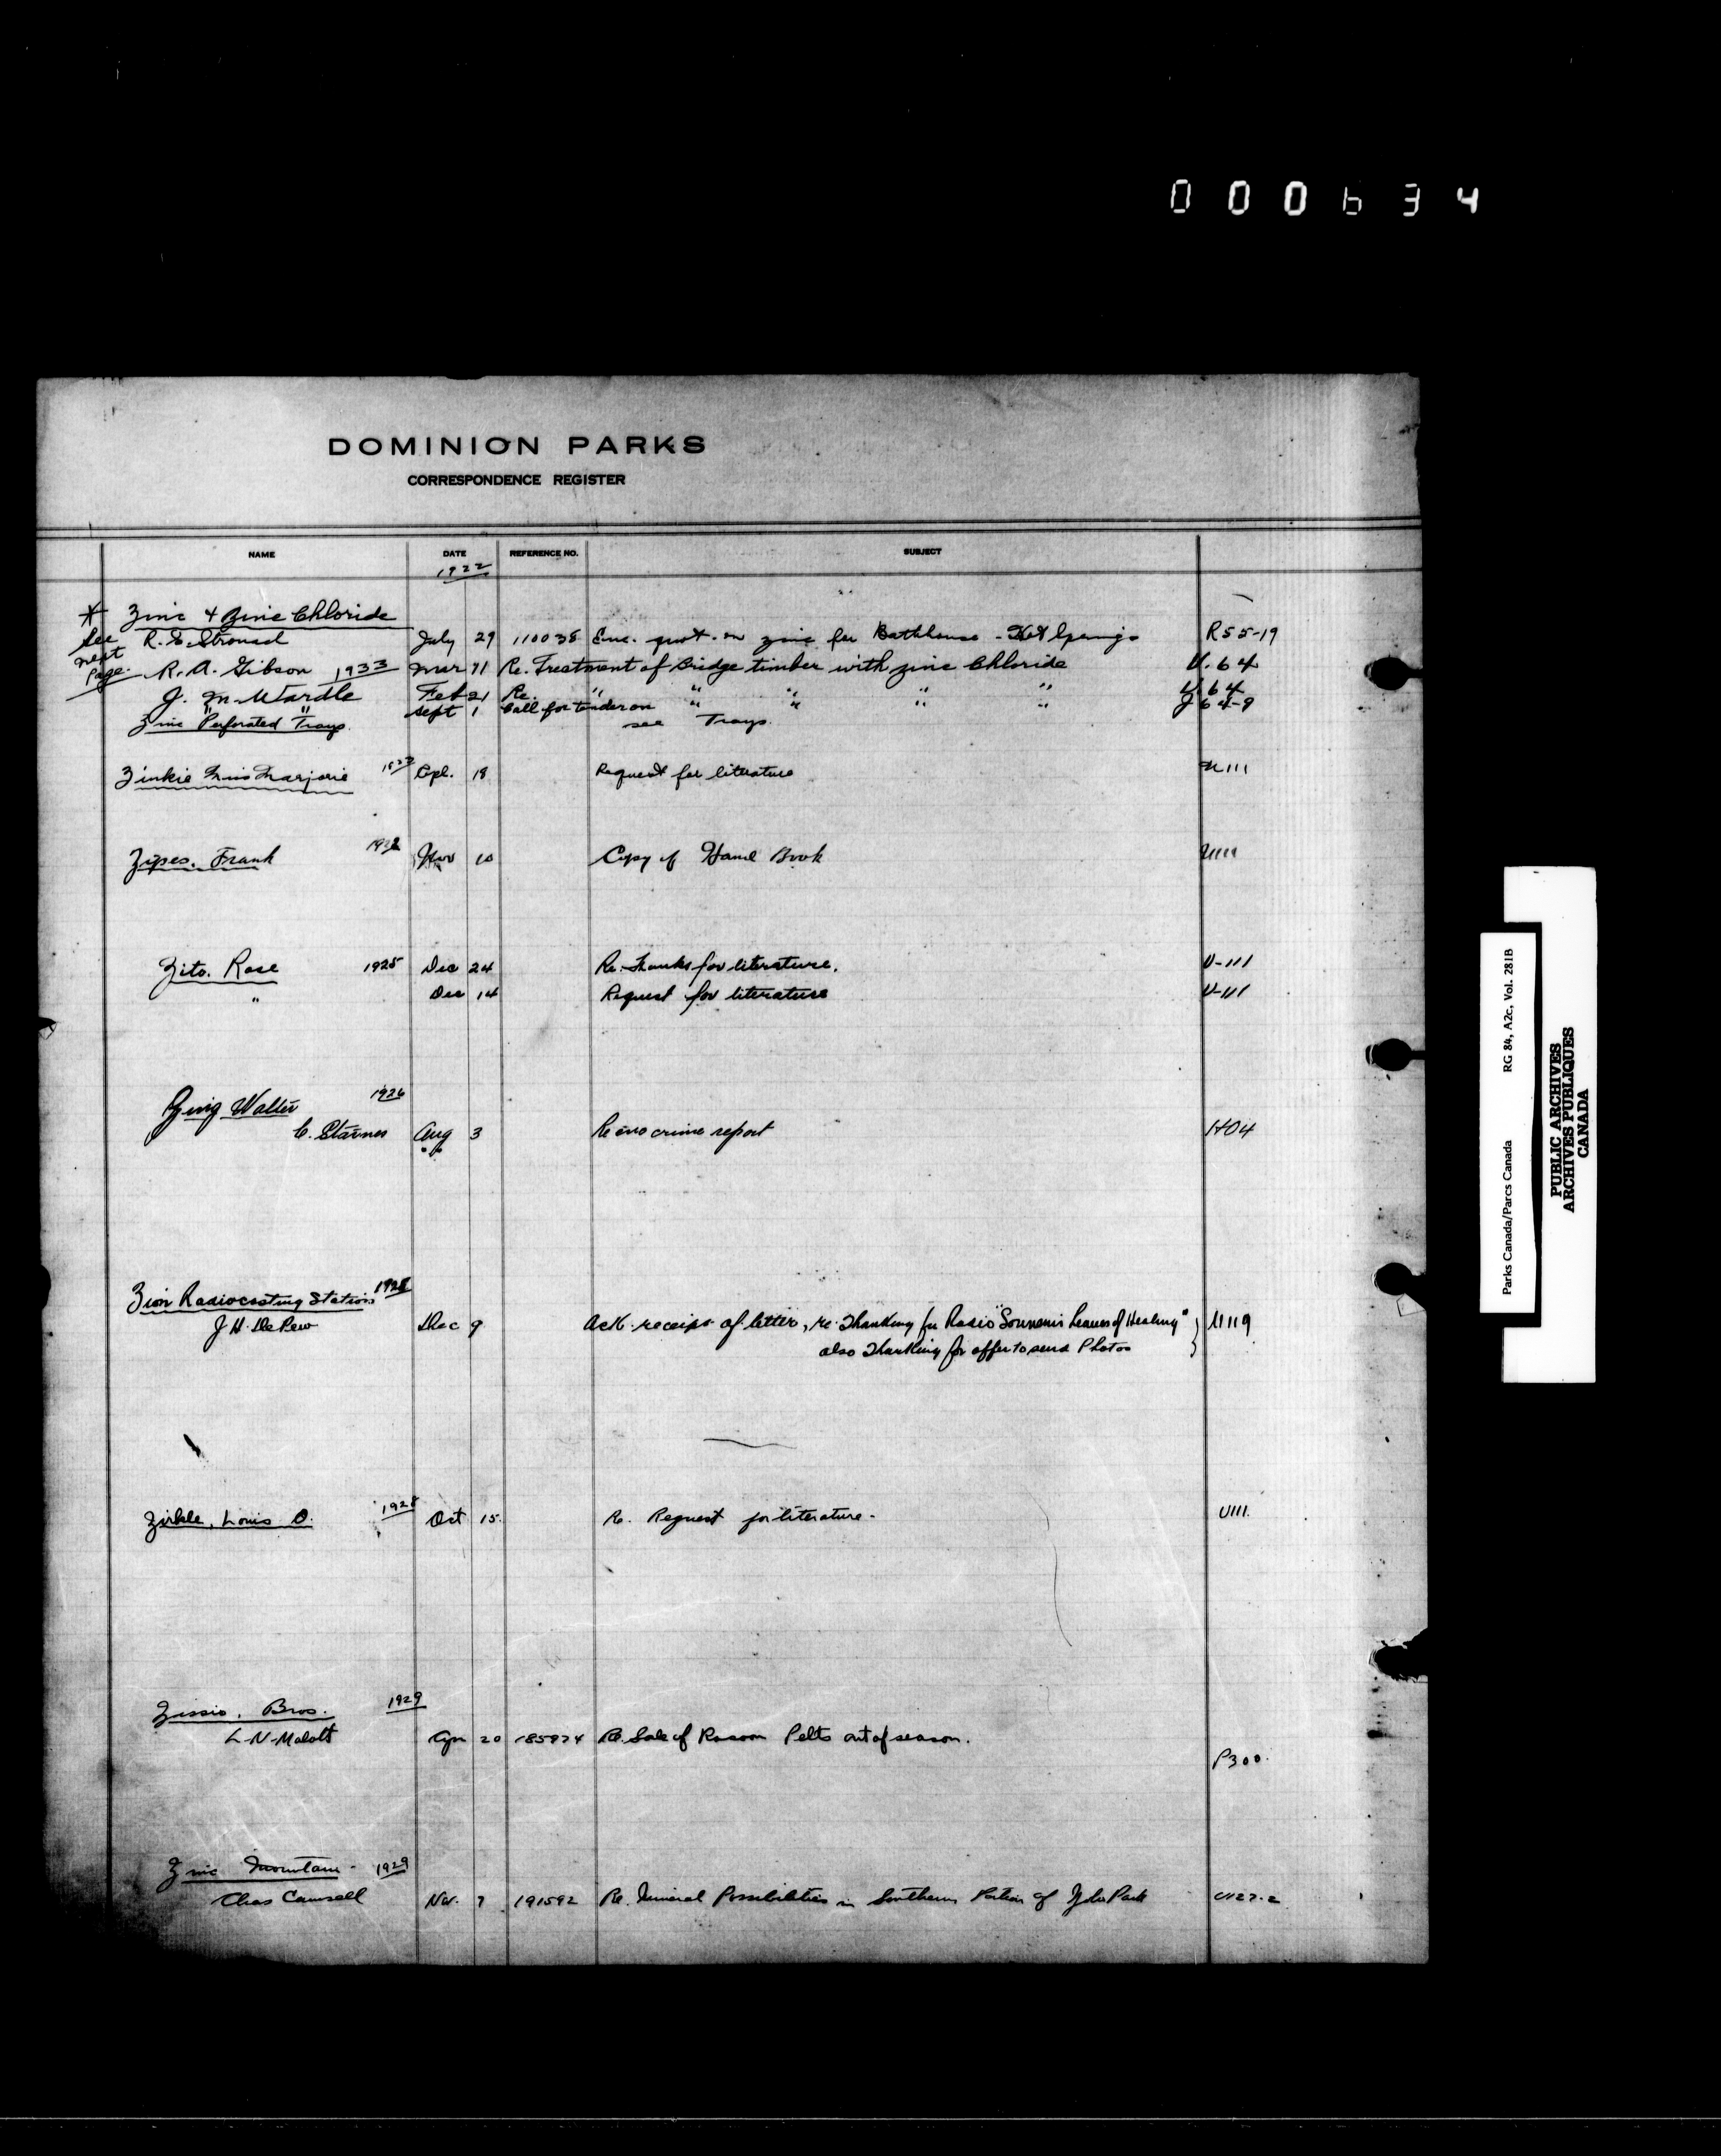 000634
DOMINION PARKS
CORRESPONDENCE REGISTER
NAME DATE REFERENCE NO. SUBJECT
1922
* Zinc & Zinc Chloride
See next Page
R. E. Stronach July 29 110038 Enc. quot. on zinc for Bathhouse - Hot Springs R55-19
R. A. Gibson 1933 Mar 11 Re. Treatment of Bridge timber with zinc Chloride U.64
J. M. Wardle Feb 21 Re. " " " " " U.64
" " Sept 1 Call for tender on " " " " 64-9
Zinc Perforated Trays see Trays.
Zinkie Miss Marjorie Apl. 18 Request for literature U111
Zipes, Frank Nov 10 Copy of Hand Book U111
Zito, Rose 1925 Dec 24 Re. thanks for literature. U-111
" Dec 14 Request for literature U-111
Walter 1926
C. Starnes Aug 3 Re crime report
Zion Radiocasting Station 1928
J. H. DePew Dec 9 Ack. receipt of letter, re. Thanking for Radio "Souvenir Leaves of Healing" } U119
also Thanking for offer to send Photos
Zirkle, Louis O. 1928 Oct 15. Re. Request for literature. U111.
Zissio, Bros. 1929
L-N-Malott Apr 20 185974 Re. Sale of Racoon Pelts out of season.
P300.
Zinc Mountain - 1929
Chas Camsell Nov. 7 191592 Re. Mineral Possibilities in Southern Portion of Yoho Park U127-2
Parks Canada/Parcs Canada RG 84, A2c, Vol. 281B
PUBLIC ARCHIVES
ARCHIVES PUBLIQUES
CANADA